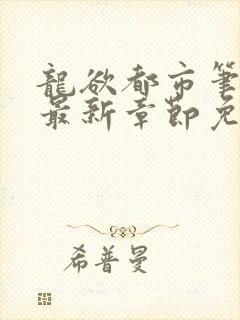 龍欲都市筆
最新章節免
希普曼